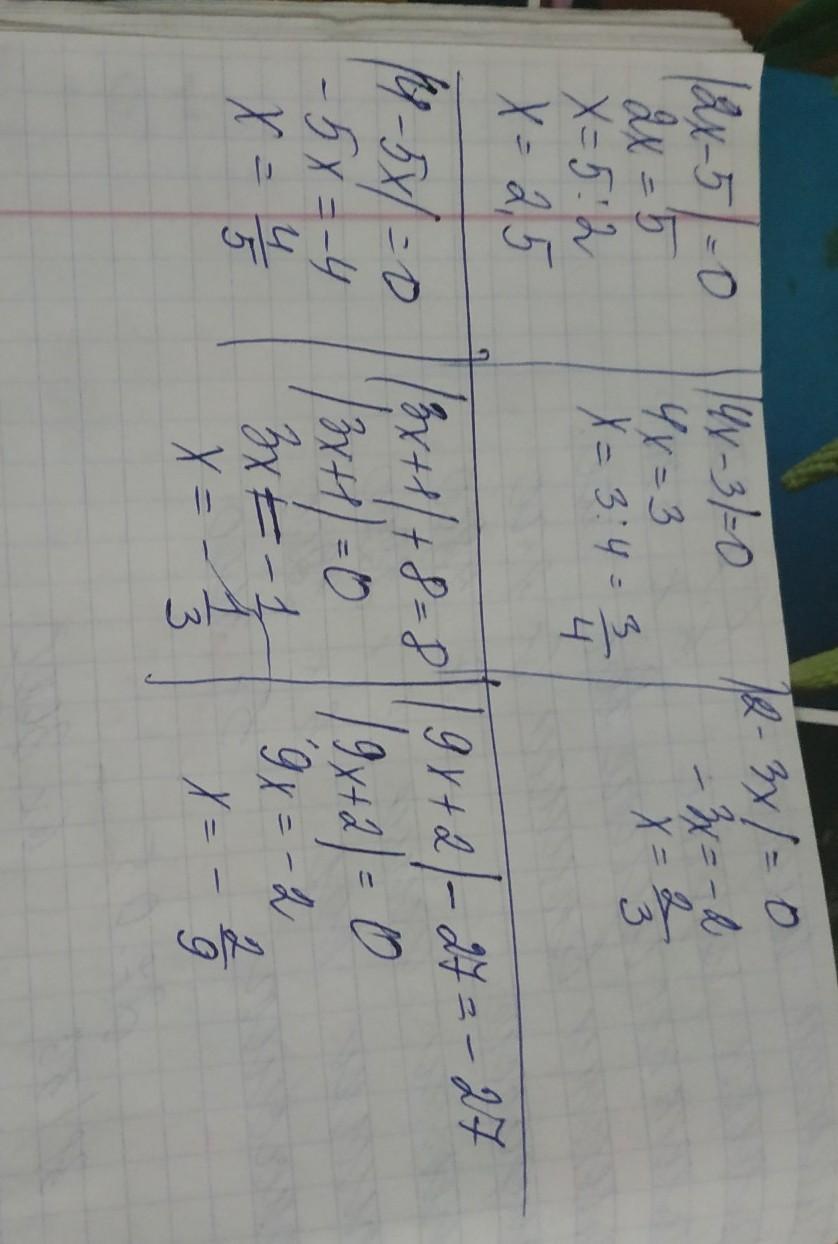 |2x-5|=0
2x=5
x=5:2
x=2,5
|4x-3|=0
4x=3
x=3:4=3/4
|2-3x|=0
-3x=-2
x=2/3
|4-5x|=0
-5x=-4
x=4/5
|3x+1|+8=8
|3x+1|=0
3x=-1
x=-1/3
|9x+2|-27=-27
|9x+2|=0
9x=-2
x=-2/9